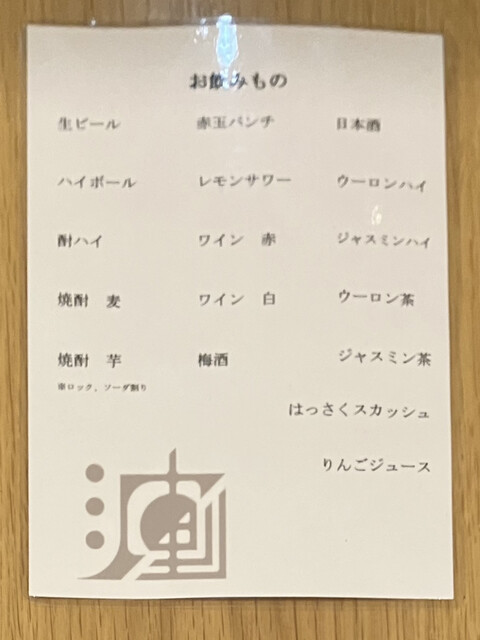 お飲みもの
生ビール
ハイボール
酎ハイ
焼酎 麦
焼酎 芋
※ロック、ソーダ割り
赤玉パンチ
レモンサワー
ワイン 赤
ワイン 白
梅酒
日本酒
ウーロンハイ
ジャスミンハイ
ウーロン茶
ジャスミン茶
はっさくスカッシュ
りんごジュース